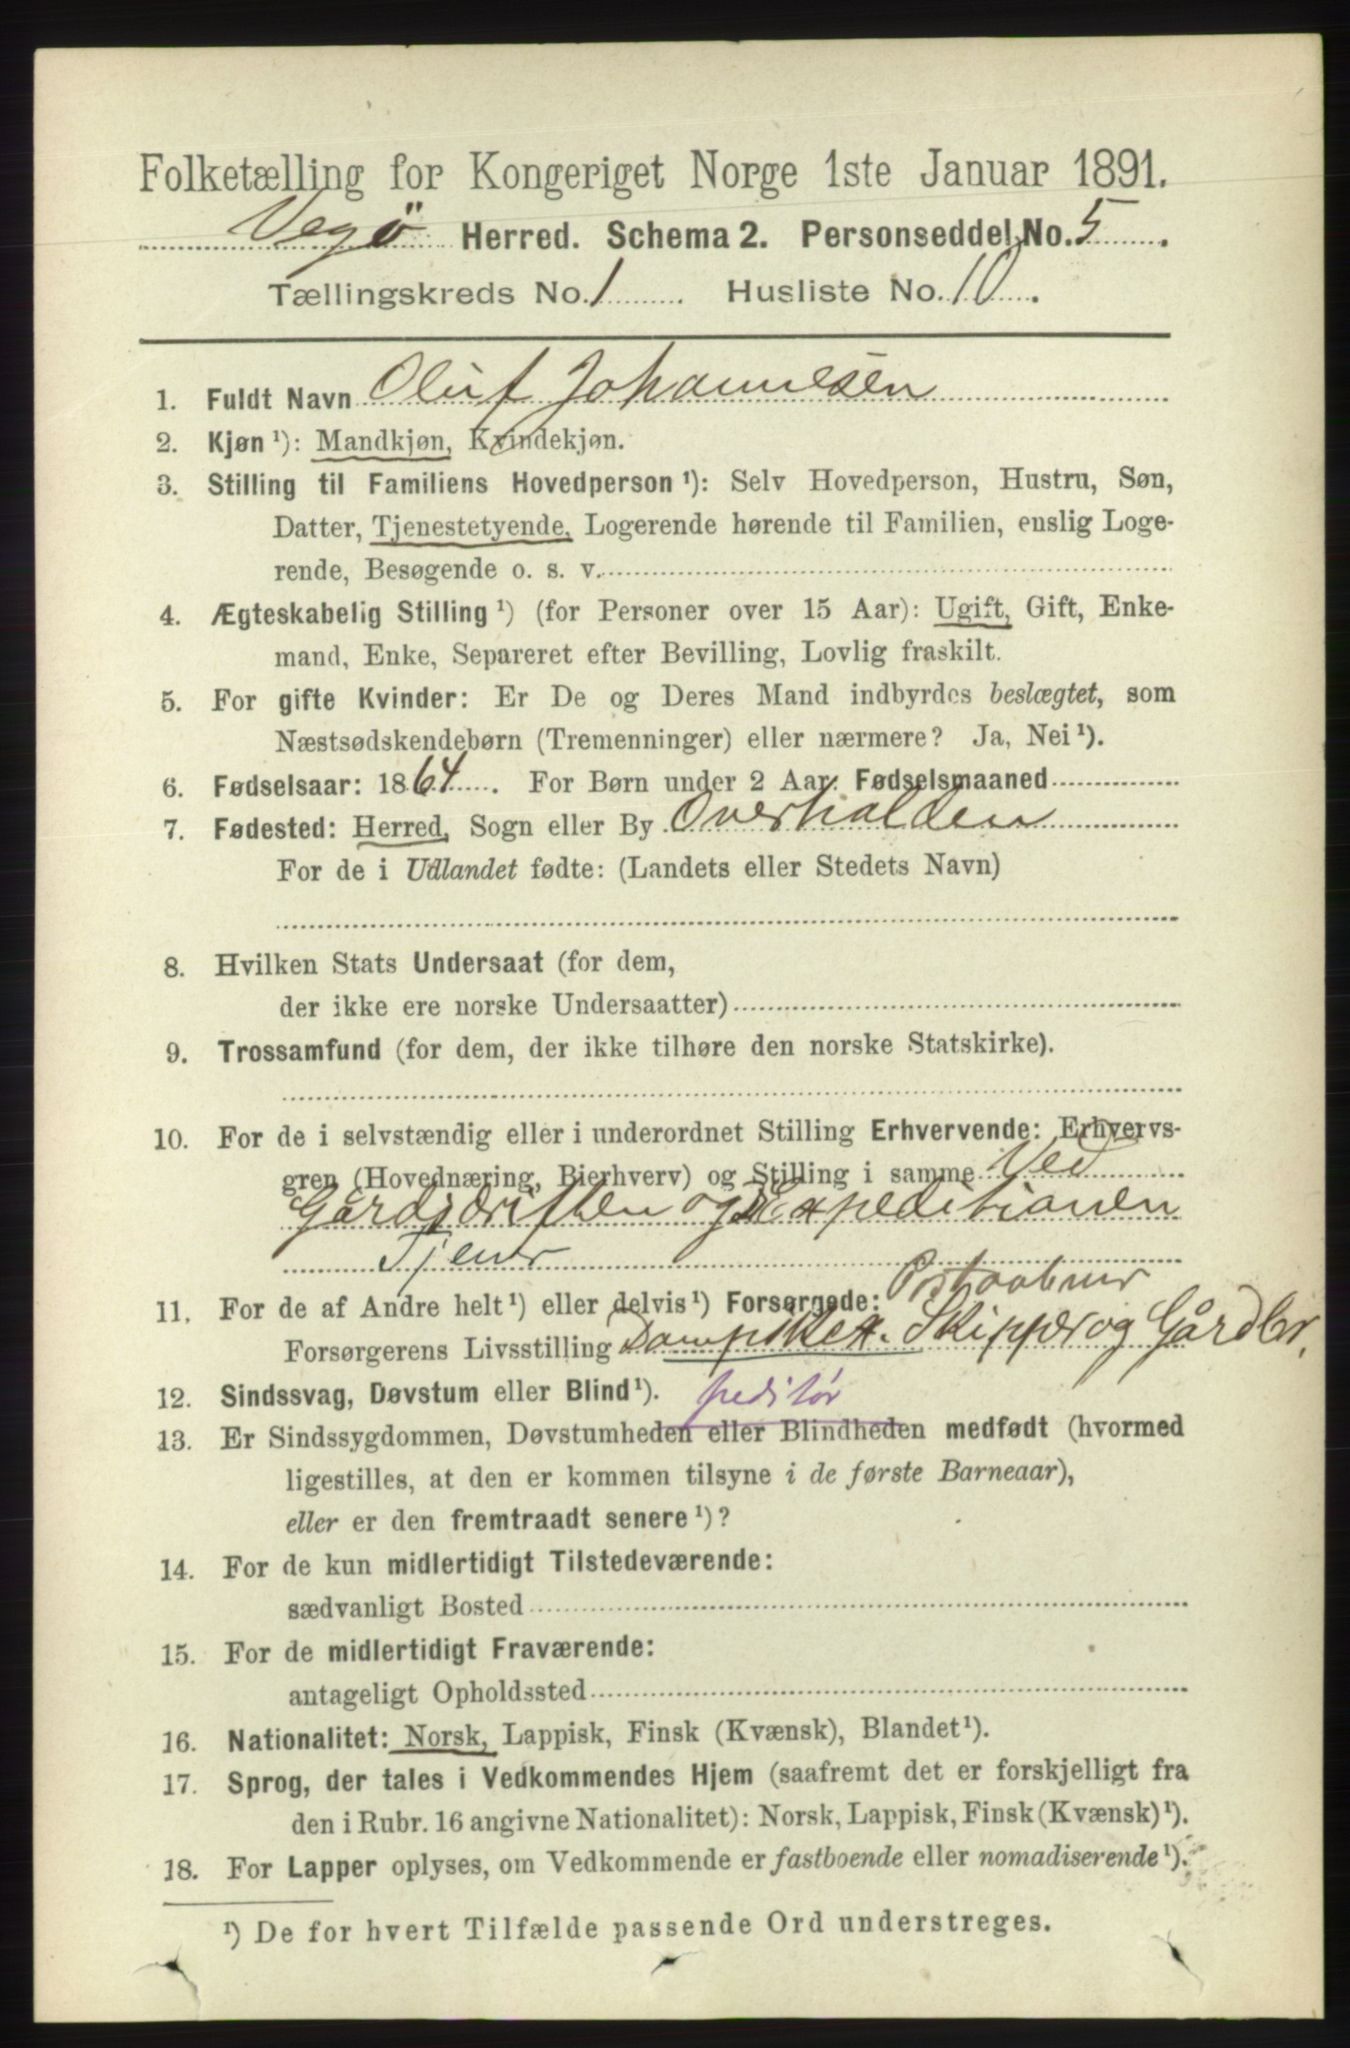 Folketælling for Kongeriget Norge 1ste Januar 1891.
Vegø Herred. Schema 2. Personseddel No. 5.
Tællingskreds No. 1. Husliste No. 10.
1. Fuldt Navn Oluf Johannesen
2. Kjøn ¹): Mandkjøn, Kvindekjøn.
3. Stilling til Familiens Hovedperson ¹): Selv Hovedperson, Hustru, Søn,
Datter, Tjenestetyende, Logerende hørende til Familien, enslig Loge-
rende, Besøgende o. s. v.
4. Ægteskabelig Stilling ¹) (for Personer over 15 Aar): Ugift, Gift, Enke-
mand, Enke, Separeret efter Bevilling, Lovlig fraskilt.
5. For gifte Kvinder: Er De og Deres Mand indbyrdes beslægtet, som
Næstsødskendebørn (Tremenninger) eller nærmere? Ja, Nei ¹).
6. Fødselsaar: 1864. For Børn under 2 Aar: Fødselsmaaned
7. Fødested: Herred, Sogn eller By Overhalden
For de i Udlandet fødte: (Landets eller Stedets Navn)
8. Hvilken Stats Undersaat (for dem,
der ikke ere norske Undersaatter)
9. Trossamfund (for dem, der ikke tilhøre den norske Statskirke).
10. For de i selvstændig eller i underordnet Stilling Erhvervende: Erhvervs-
gren (Hovednæring, Bierhverv) og Stilling i samme Ved
Gårdsdriften og Expeditionen
Tjener
Postaabner
11. For de af Andre helt ¹) eller delvis ¹) Forsørgede:
Forsørgerens Livsstilling Dampskex. Skipper og Gårdbr.
12. Sindssvag, Døvstum eller Blind ¹). peditør
13. Er Sindssygdommen, Døvstumheden eller Blindheden medfødt (hvormed
ligestilles, at den er kommen tilsyne i de første Barneaar),
eller er den fremtraadt senere ¹)?
14. For de kun midlertidigt Tilstedeværende:
sædvanligt Bosted
15. For de midlertidigt Fraværende:
antageligt Opholdssted
16. Nationalitet: Norsk, Lappisk, Finsk (Kvænsk), Blandet ¹).
17. Sprog, der tales i Vedkommendes Hjem (saafremt det er forskjelligt fra
den i Rubr. 16 angivne Nationalitet): Norsk, Lappisk, Finsk (Kvænsk) ¹).
18. For Lapper oplyses, om Vedkommende er fastboende eller nomadiserende ¹).
¹) De for hvert Tilfælde passende Ord understreges.